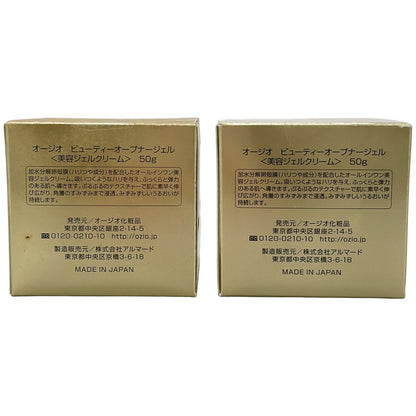 オージオ ビューティーオープナージェル
〈美容ジェルクリーム〉 50g
加水分解卵殻膜(ハリつや成分)を配合したオールインワン美
容ジェルクリーム。吸いつくようなハリを与え、ふっくらと弾力
のある肌へ導きます。ぷるぷるのテクスチャーで肌に素早く伸
び広がり、角層のすみずみまで浸透。みずみずしいうるおいが
持続します。
発売元/オージオ化粧品
東京都中央区銀座2-14-5
0120-0210-10 http://ozio.jp
製造販売元/株式会社アルマード
東京都中央区京橋3-6-18
MADE IN JAPAN
オージオ ビューティーオープナージェル
〈美容ジェルクリーム〉 50g
加水分解卵殻膜(ハリつや成分)を配合したオールインワン美
容ジェルクリーム。吸いつくようなハリを与え、ふっくらと弾力
のある肌へ導きます。ぷるぷるのテクスチャーで肌に素早く伸
び広がり、角層のすみずみまで浸透。みずみずしいうるおいが
持続します。
発売元/オージオ化粧品
東京都中央区銀座2-14-5
0120-0210-10 http://ozio.jp
製造販売元/株式会社アルマード
東京都中央区京橋3-6-18
MADE IN JAPAN